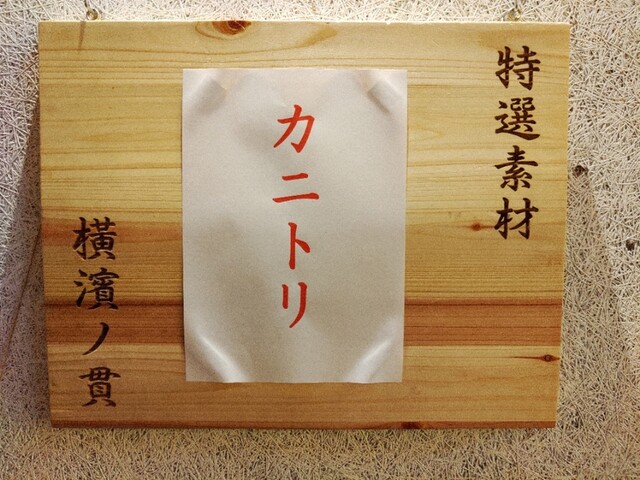 特選素材
カニトリ
横濱ノ貫